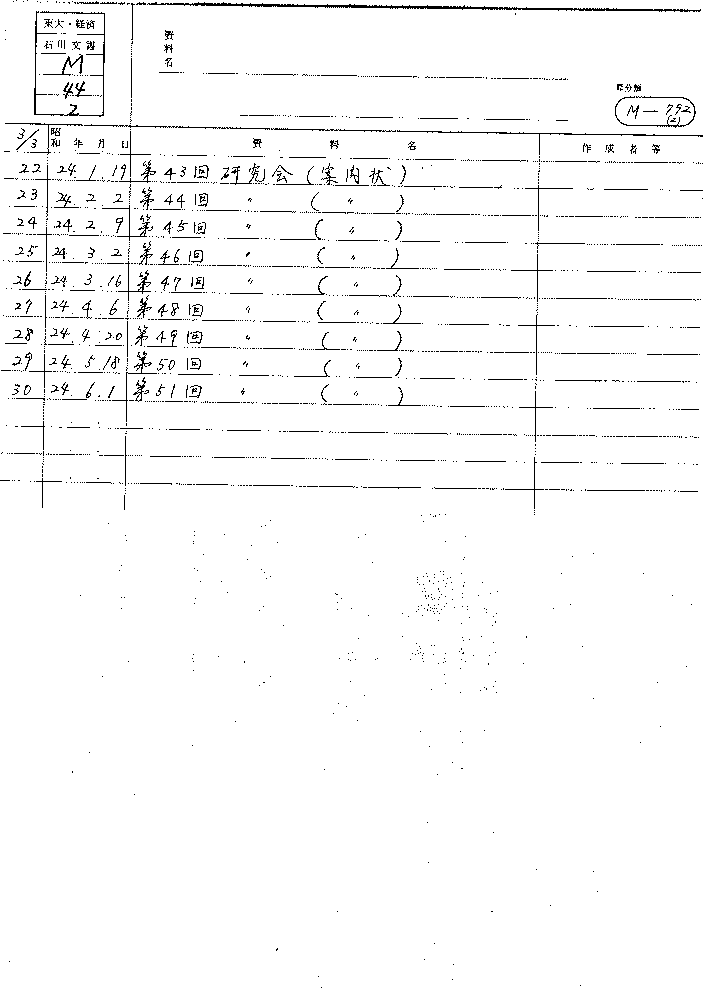 東大・経済
石川文書
M
44
2
資料名
原分類
M－792
(2)
3/3 昭和 年 月 日 資 料 名 作 成 者 等
22 24. 1. 19 第43回 研究会 (案内状)
23 24. 2. 2 第44回 〃 ( 〃 )
24 24. 2. 9 第45回 〃 ( 〃 )
25 24. 3. 2 第46回 〃 ( 〃 )
26 24. 3. 16 第47回 〃 ( 〃 )
27 24. 4. 6 第48回 〃 ( 〃 )
28 24. 4. 20 第49回 〃 ( 〃 )
29 24. 5. 18 第50回 〃 ( 〃 )
30 24. 6. 1 第51回 〃 ( 〃 )